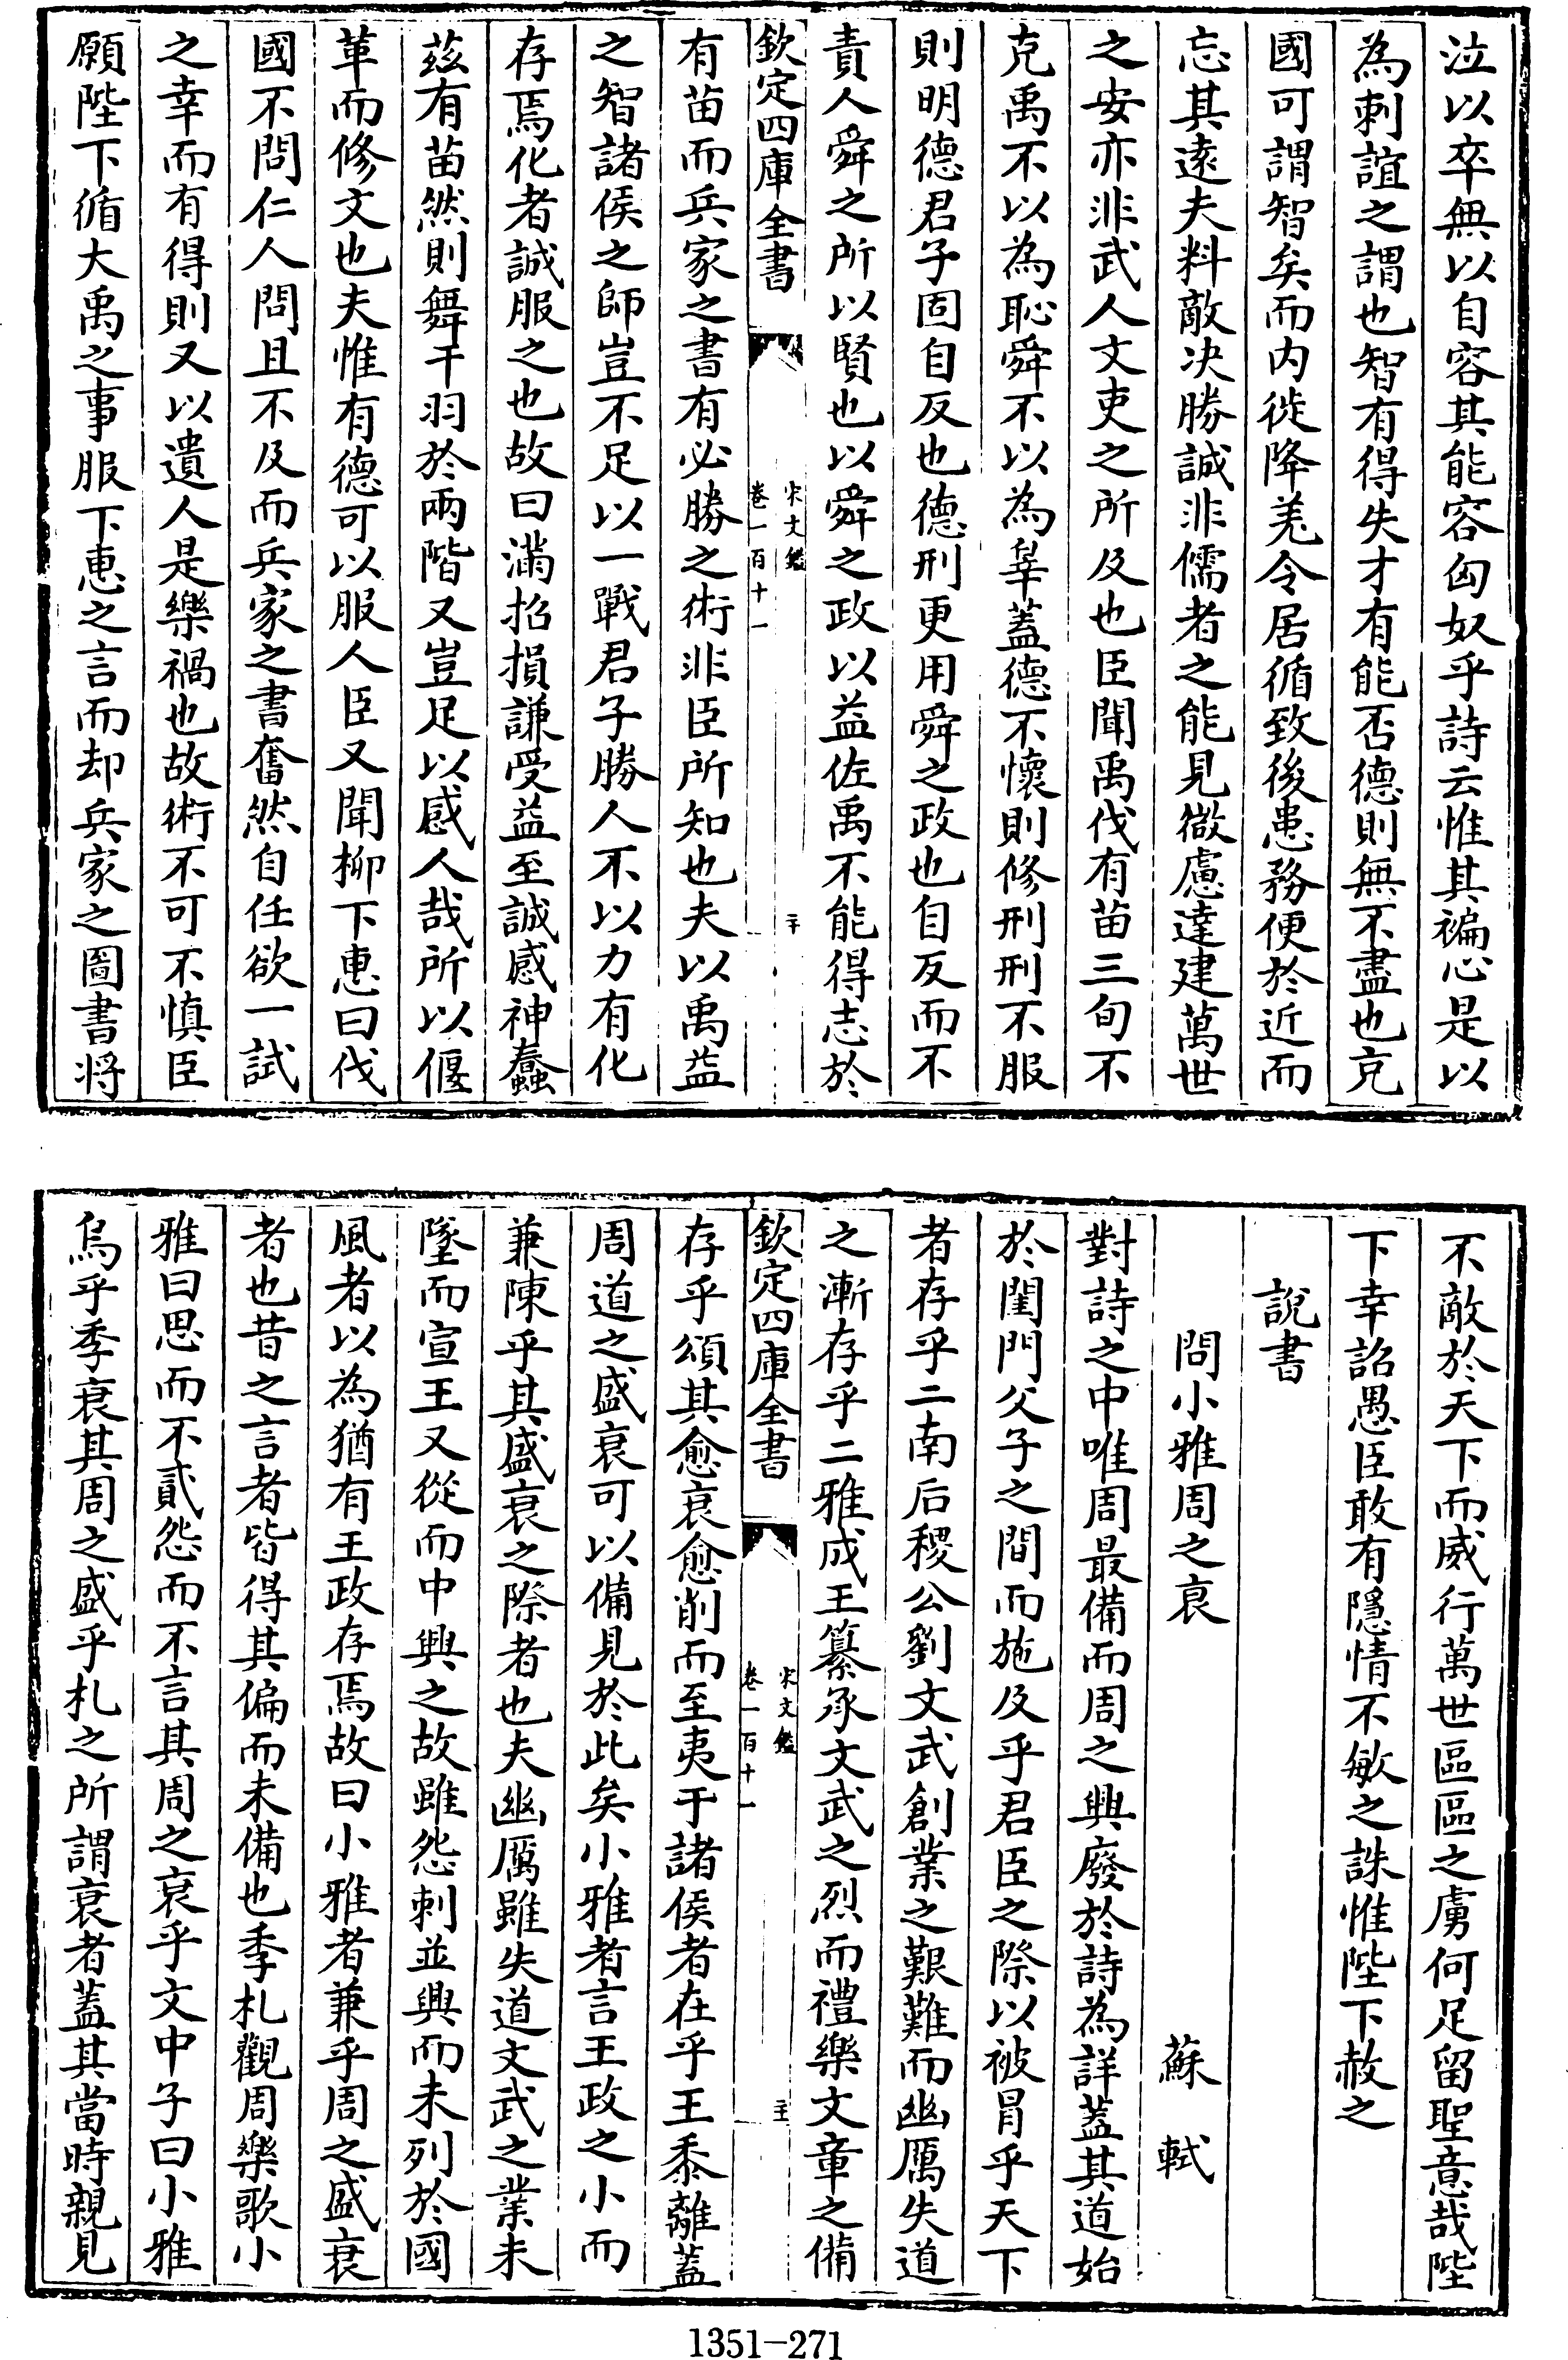 泣以卒無以自容其能容匈奴乎詩云惟其褊心是以
為刺誼之謂也智有得失才有能否德則無不盡也克
國可謂智矣而内徙降羌令居循致後患務便於近而
忘其遠夫料敵决勝誠非儒者之能見微慮逹建萬世
之安亦非武人文吏之所及也臣聞禹伐有苗三旬不
克禹不以為恥舜不以為辠蓋德不懷則修刑刑不服
則明德君子固自反也德刑更用舜之政也自反而不
責人舜之所以賢也以舜之政以益佐禹不能得志於
欽定四庫全書
宋文鑑
卷一百十一
二十
有苗而兵家之書有必勝之術非臣所知也夫以禹益
之智諸侯之師豈不足以一戰君子勝人不以力有化
存焉化者誠服之也故曰滿招損謙受益至誠感神蠢
茲有苗然則舞干羽於兩階又豈足以感人哉所以偃
革而修文也夫惟有德可以服人臣又聞柳下惠曰伐
國不問仁人問且不及而兵家之書奮然自任欲一試
之幸而有得則又以遺人是樂禍也故術不可不慎臣
願陛下循大禹之事服下惠之言而却兵家之圖書將
不敵於天下而威行萬世區區之虜何足留聖意哉陛
下幸詔愚臣敢有隱情不敏之誅惟陛下赦之
說書
問小雅周之衰
蘇軾
對詩之中唯周最備而周之興廢於詩為詳蓋其道始
於閨門父子之間而施及乎君臣之際以被冒乎天下
者存乎二南后稷公劉文武創業之艱難而幽厲失道
之漸存乎二雅成王纂承文武之烈而禮樂文章之備
欽定四庫全書
宋文鑑
卷一百十一
二十一
存乎頌其愈衰愈削而至夷于諸侯者在乎王黍離蓋
周道之盛衰可以備見於此矣小雅者言王政之小而
兼陳乎其盛衰之際者也夫幽厲雖失道文武之業未
墜而宣王又從而中興之故雖怨刺並興而未列於國
風者以為猶有王政存焉故曰小雅者兼乎周之盛衰
者也昔之言者皆得其偏而未備也季札觀周樂歌小
雅曰思而不貳怨而不言其周之衰乎文中子曰小雅
烏乎季衰其周之盛乎札之所謂衰者蓋其當時親見
1351-271